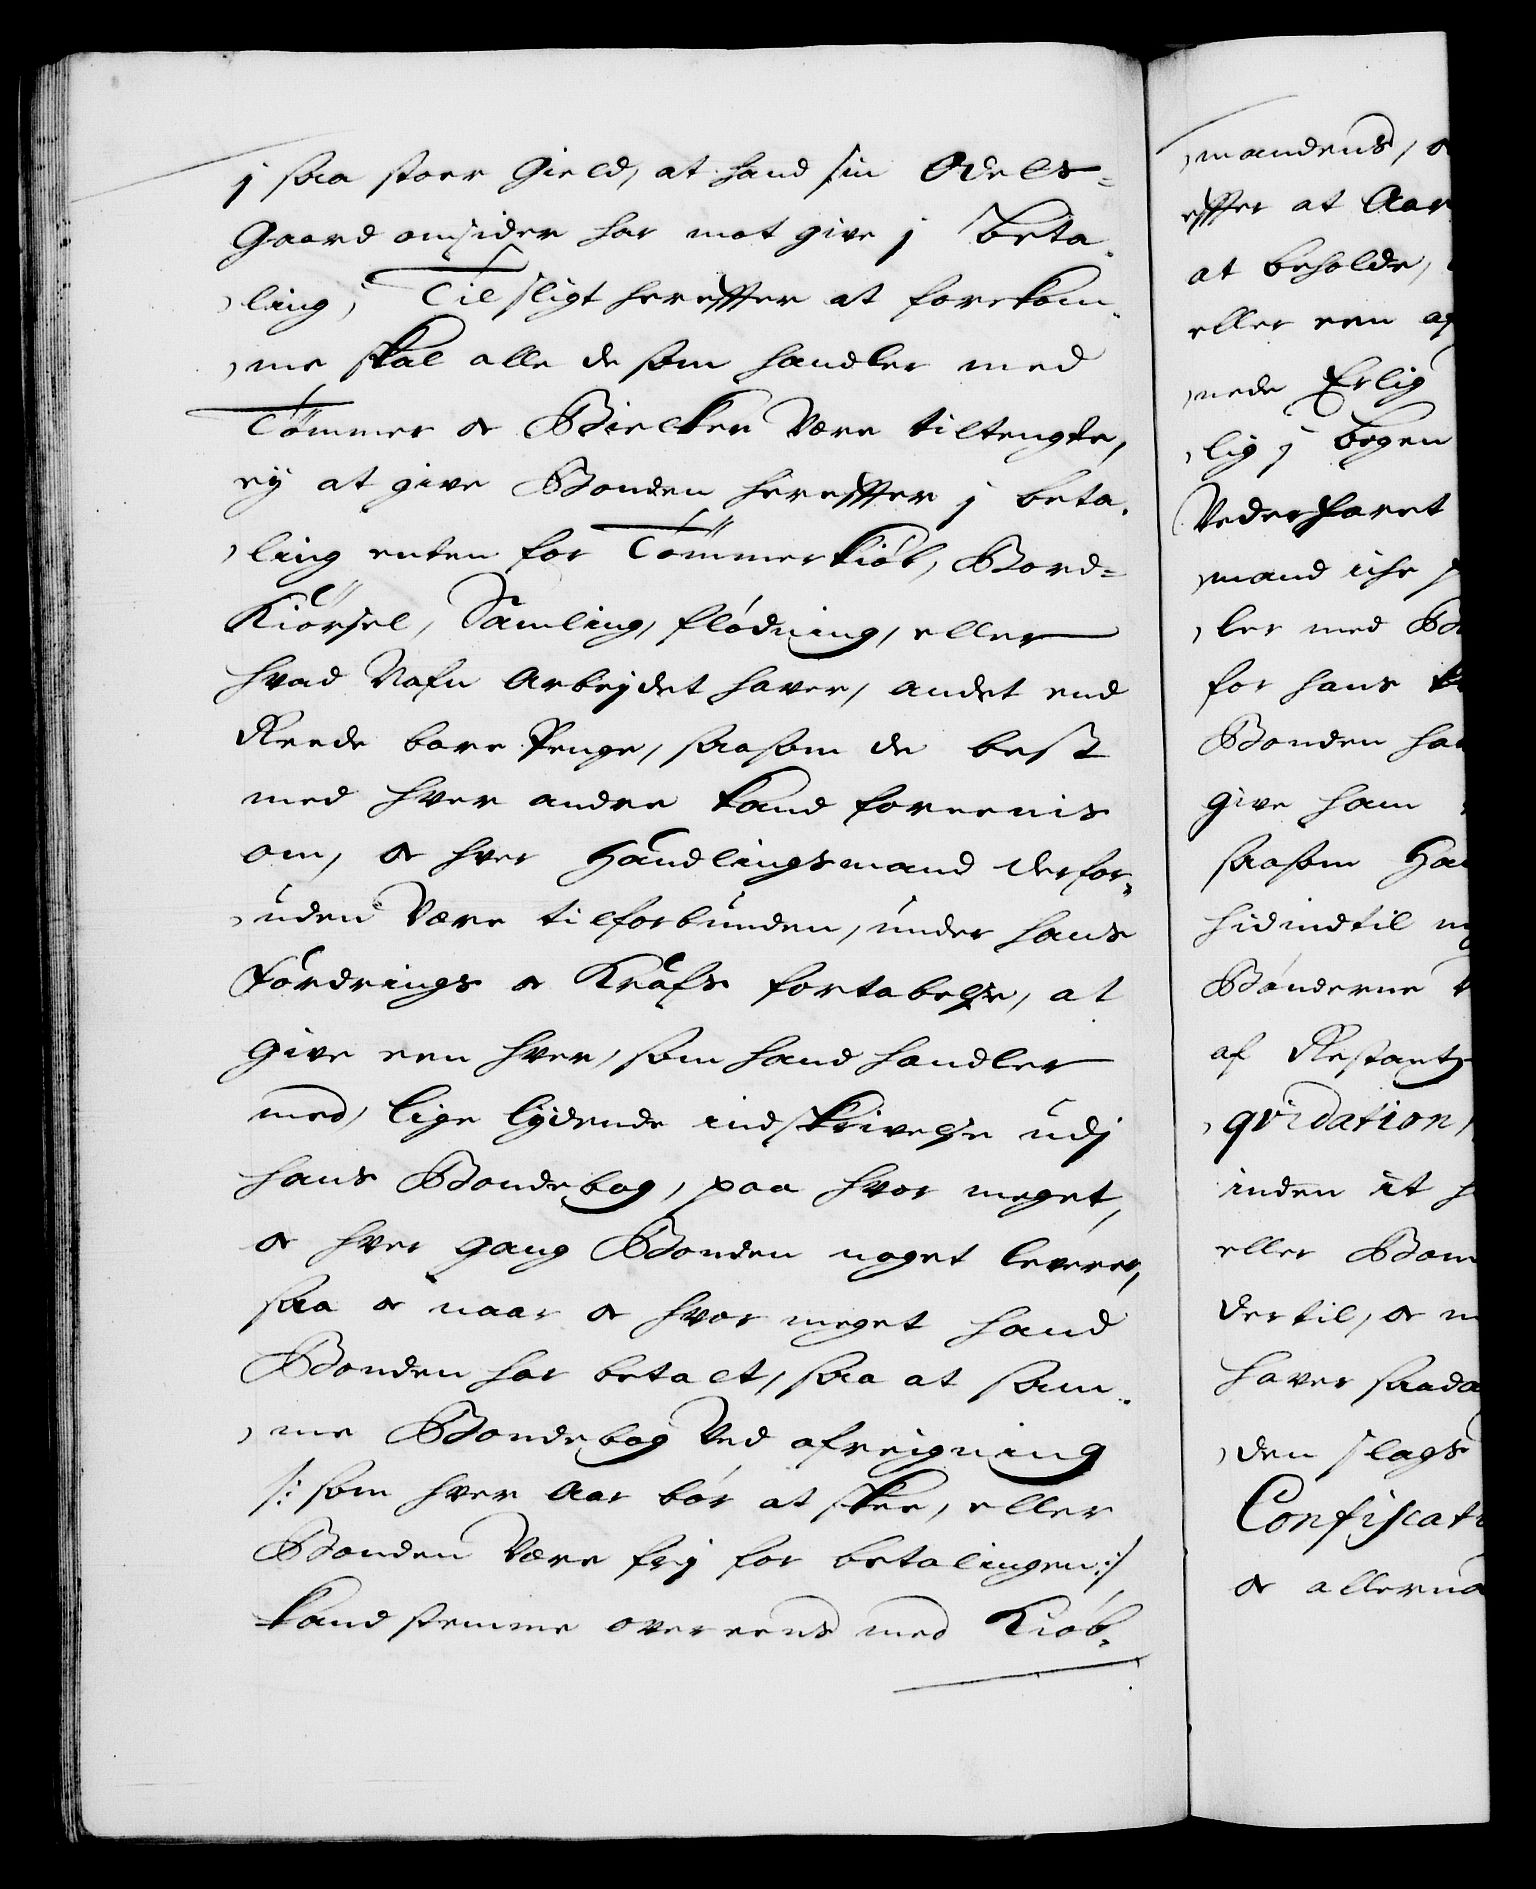 j saa stoer Gield, at hand sin Odels-
Gaard omsider har mot give j beta-
ling, Til sligt hereffter at forekom-
me skal alle de som handler med
Tömmer og Bielcker være tiltengte,
ej at give Bonden hereffter j beta-
ling enten for Tömmerkiöb, Bord-
Kiörsel, Samling, flödning, eller
hvad Nafn Arbejdet haver, andet end
Reede bare Penge, saasom de best
med hver andre kand foreenis
om, og hver Handlingsmand derfor-
uden være tilforbunden, under hans
Fordrings og Krafs fortabelse, at
give een hver, som hand handler
med, lige lydende indskrivelse udj
hans Bondebog, paa hvor meget,
og hver gang Bonden noget leverer,
saa og naar og hvor meget hand
Bonden har betalt, saa at sam-
me Bondebog ved afreigning
/: som hver Aar bör at skee, eller
Bonden være frj for betalingen :/
kand stemme overeens med Kiöb-
mandens, o
effter at Aar
at beholde,
eller een af
nede Erlig
lig j bogen
Vederfaret
mand iche
ler med B
for hans
Bonden ha
give ham
saasom Ha
hidindtil
Bönderne
af Restantz
qvidation,
inden it
eller Bon
dertil, og
haver saada
den slags
Confiscati
og allerna